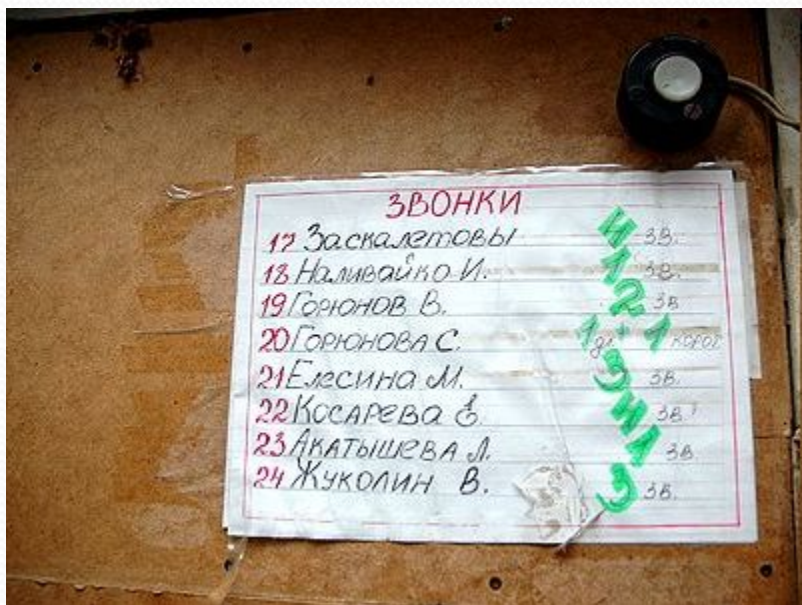 ЗВОНКИ
17 Заскалетовы зв.
18 Наливайко И. зв.
19 Горюнов В. зв
20 Горюнова С. 1 дл корот
21 Елесина М. зв.
22 Косарева Е. зв.
23 Акатышева Л. зв
24 Жуколин В. зв.